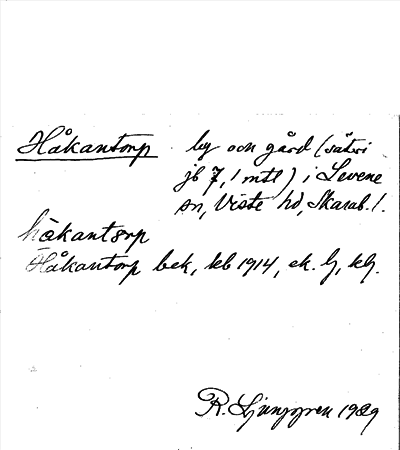 Håkantorp by och gård (säteri
jb 7, 1 mtl) i Levene
sn, Viste hd, Skarab. l.
håkantɔrp
Håkantorp bek, kb 1914, ek. b, kb.
R. Ljunggren 1929